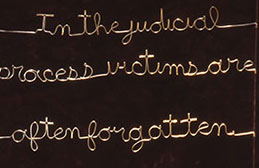 In the judicial
process victims are
often forgotten